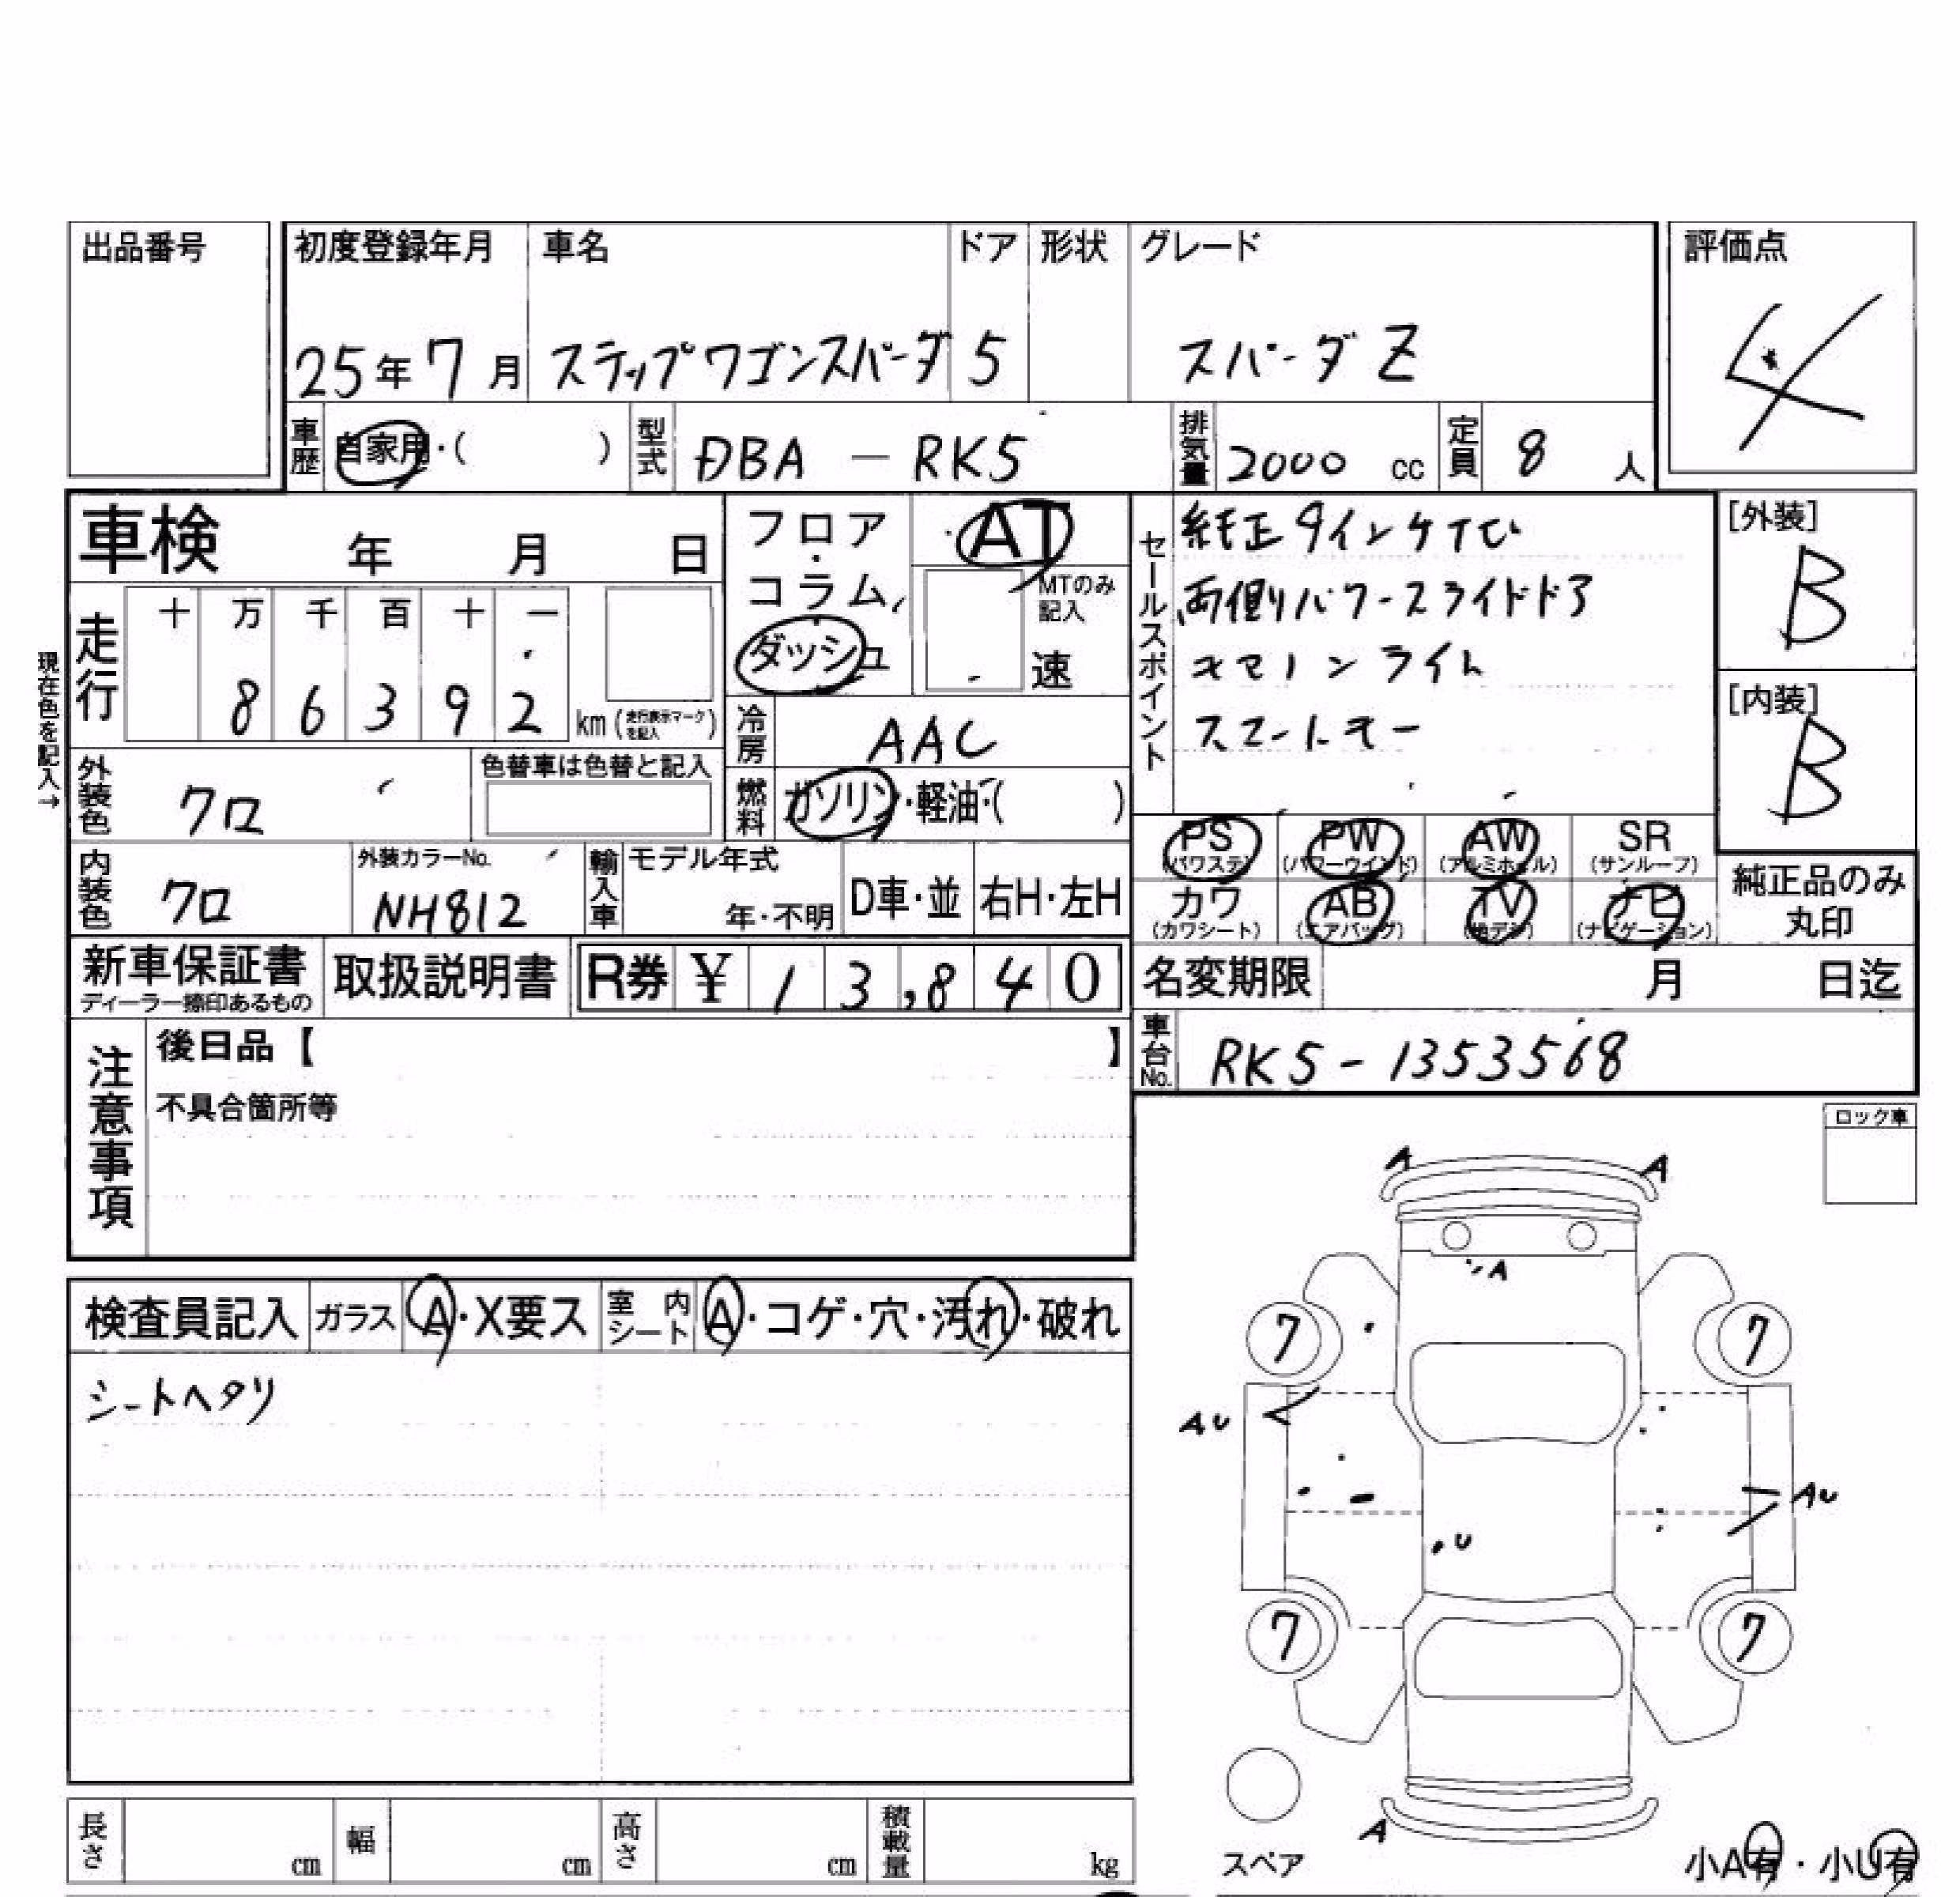 出品番号
初度登録年月 車名 ドア 形状 グレード 評価点
25年 7月 ステップワゴンスパーダ 5 スパーダ Z 4
車歴 自家用・( ) 型式 DBA - RK5 排気量 2000 cc 定員 8 人
車検 年 月 日
フロア・コラム
ダッシュ
AT
MTのみ記入
速
現在色を記入→
走行 十 万 千 百 十 一
8 6 3 9 2 km (走行表示マークを記入)
冷房 AAC
燃料 ガソリン・軽油・( )
セールスポイント
純正
両側パワースライドドア
ライト
スマートキー
[外装]
B
[内装]
B
外装色 クロ 色替車は色替と記入
内装色 クロ 外装カラーNo. NH812 輸入車 モデル年式 年・不明 D車・並 右H・左H
PS (パワステ) PW (パワーウインド) AW (アルミホイル) SR (サンルーフ)
カワ (カワシート) AB (エアバッグ) TV (地デジ) ナビ (ナビゲーション)
純正品のみ
丸印
新車保証書 ディーラー捺印あるもの 取扱説明書 R券 ¥ 1 3,8 4 0
名変期限 月 日迄
車台No. RK5-1353568
注意事項
後日品【 】
不具合箇所等
ロック車
検査員記入 ガラス A・X要ス 室内シート A・コゲ・穴・汚れ・破れ
シートヘタリ
A A
A
7 7
AU
AU
U
7 7
スペア
A
小A有・小U有
長さ cm 幅 cm 高さ cm 積載量 kg